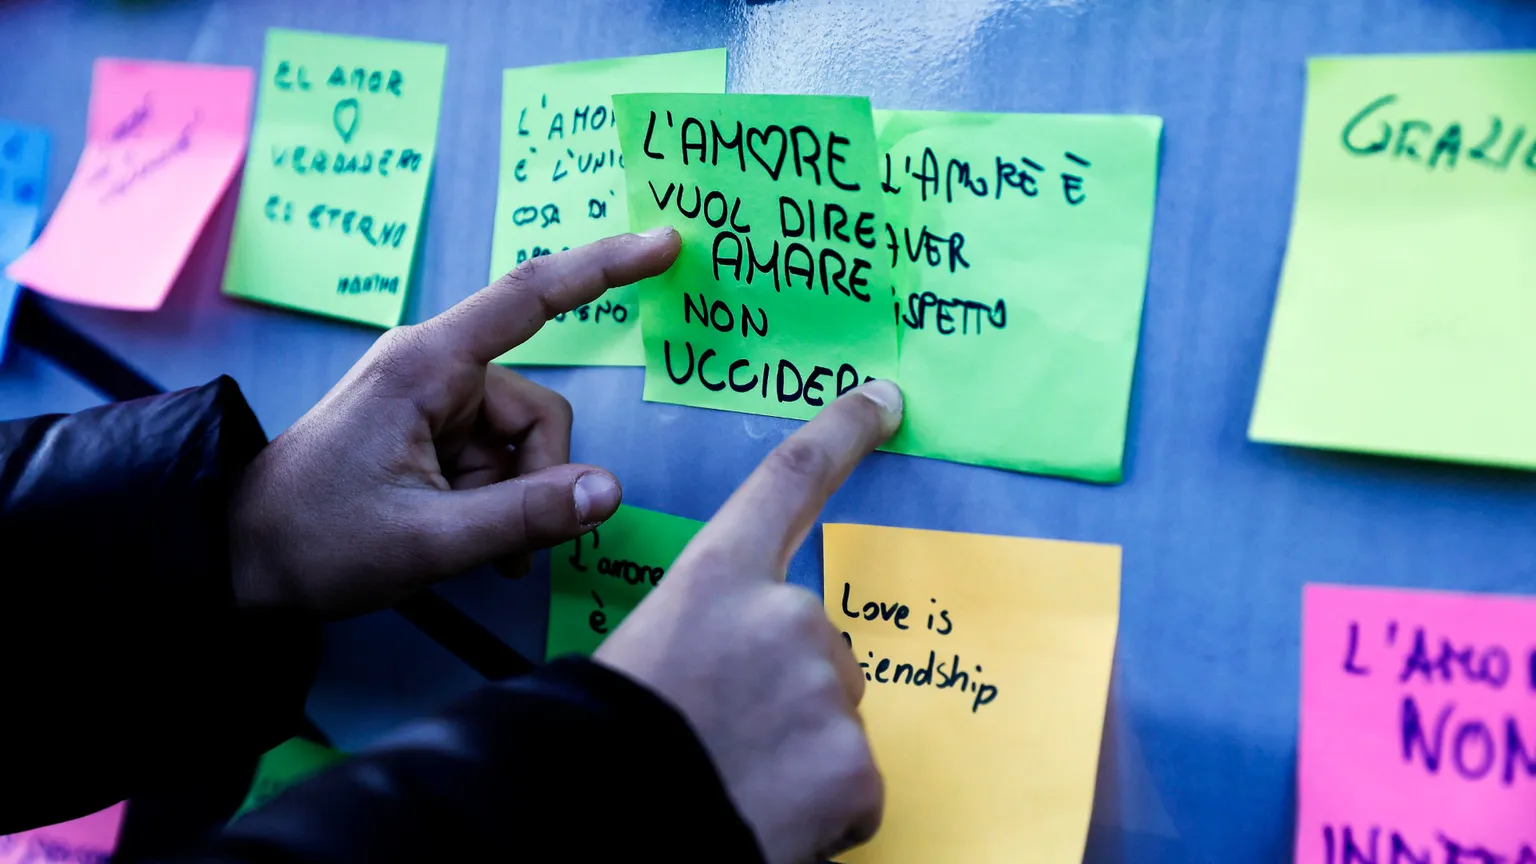 EL AMOR
VERDADERO
ES ETERNO
L'AMO
È L'UNIC
COSA DI
L'AMORE
VUOL DIRE
AMARE
NON
UCCIDERE
L'AMORÈ È
AVER
ISPETTO
GRAZIE
L'amore
è
Love is
friendship
L'AMO
NON